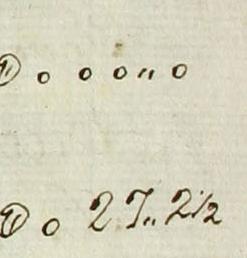 o o o,, o
o 27,, 2½